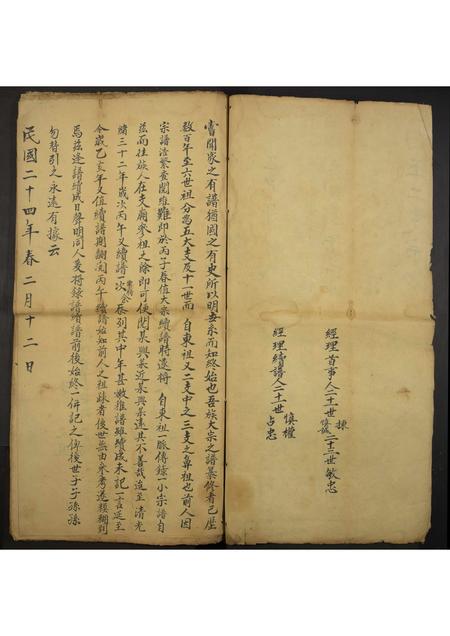 經理首事人二十一世 棟 俊 二十三世敏忠
經理續譜人二十一世 慎權 占忠
嘗聞家之有譜猶國之有史所以明支系而知終始也吾族大宗之譜纂修者已歷
数百年至六世祖分為五大支及十一世而 自東祖又二支中之三支之鼻祖也前人因
宗譜浩繁查閱維難即於丙子春值大宗續譜時遂將 自東祖一脈傳錄一小宗譜自
茲而往族人在支廟參祖之餘即可便閱某與某近某與某遠其不善哉迨至 清光
緒三十二年歲次丙午又續譜一次 余忝列其中年甚幼推譜雖續成未記一言延至
今歲乙亥年又值續譜期調閱丙午續譜始知前人之祖缺者後世無由參考遂模糊到
焉茲逢譜續成日聲明同人爰將錄譜續譜前後始終一併記之俾後世子子孫孫
勿替引之永遠有據云
民國二十四年春二月十二日